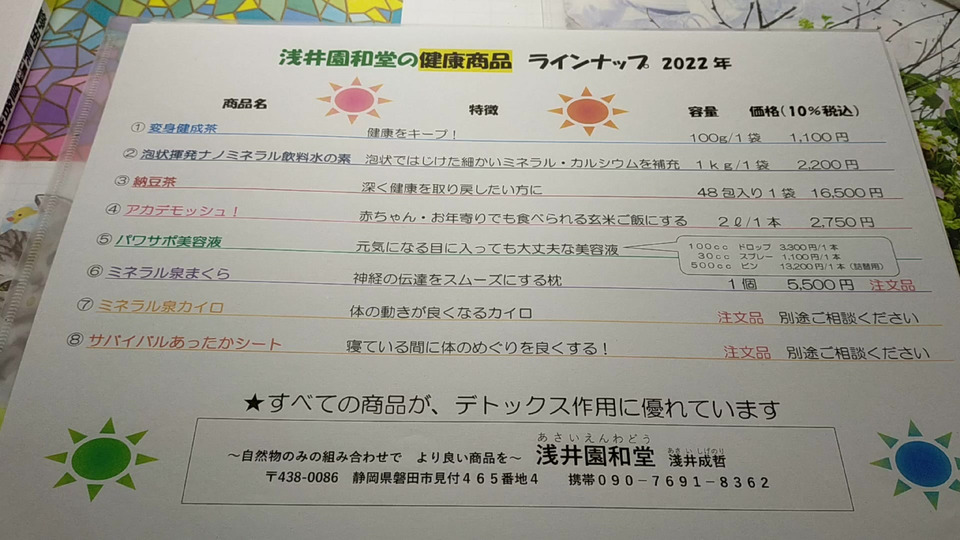 浅井園和堂の健康商品 ラインナップ 2022年
商品名 特徴 容量 価格(10%税込)
① 変身健成茶 健康をキープ! 100g/1袋 1,100円
② 泡状揮発ナノミネラル飲料水の素 泡状ではじけた細かいミネラル・カルシウムを補充 1kg/1袋 2,200円
③ 納豆茶 深く健康を取り戻したい方に 48包入り1袋 16,500円
④ アカデモッシュ! 赤ちゃん・お年寄りでも食べられる玄米ご飯にする 2ℓ/1本 2,750円
⑤ パワサポ美容液 元気になる目に入っても大丈夫な美容液
100cc ドロップ 3,300円/1本
30cc スプレー 1,100円/1本
500cc ビン 13,200円/1本(詰替用)
⑥ ミネラル泉まくら 神経の伝達をスムーズにする枕 1個 5,500円 注文品
⑦ ミネラル泉カイロ 体の動きが良くなるカイロ 注文品 別途ご相談ください
⑧ サバイバルあったかシート 寝ている間に体のめぐりを良くする! 注文品 別途ご相談ください
★すべての商品が、デトックス作用に優れています
あさいえんわどう あさい しげのり
~自然物のみの組み合わせで より良い商品を~ 浅井園和堂 淺井成哲
〒438-0086 静岡県磐田市見付465番地4 携帯090-7691-8362